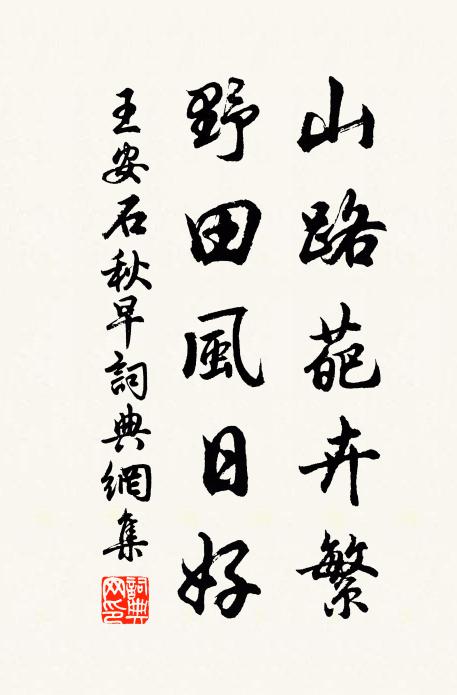 山路葩卉繁
野田風日好
王安石秋早詞典網集
詞典網印